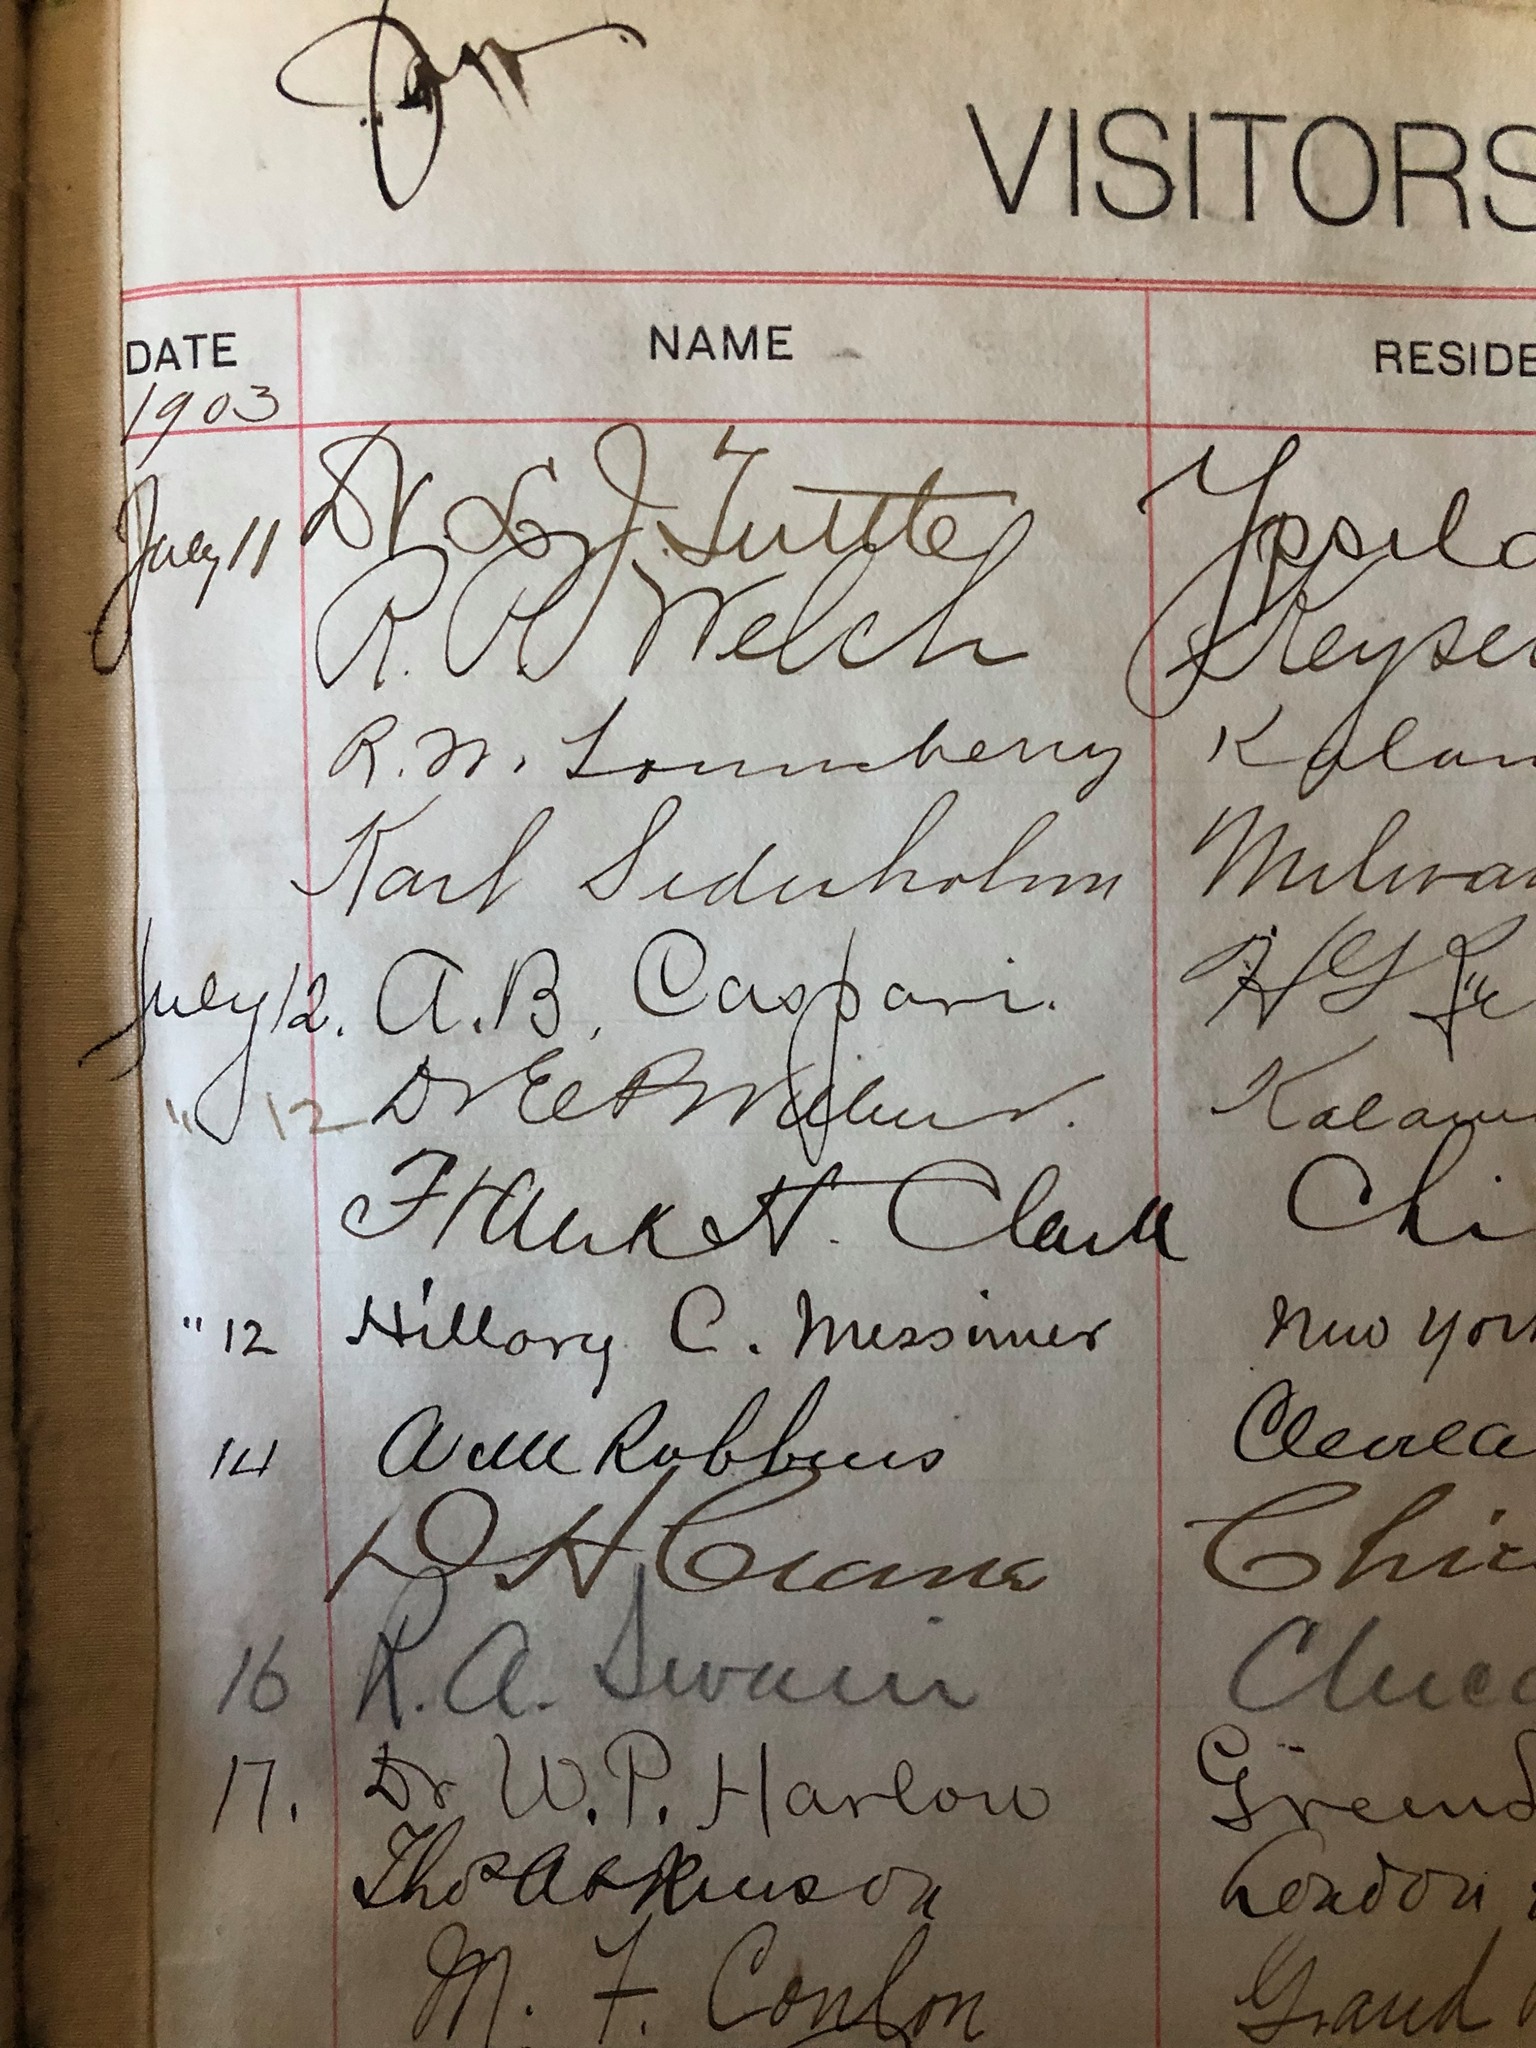 VISITORS
DATE NAME RESIDE
1903
July 11 Dr. J. Tuttle Ypsila
R. Welch Keyser
R. W. Lounsberry Kalam
Karl Sederholm Milwau
July 12. A. B. Caspari.
" 12 Dr Wilbur. Kalam
Frank H. Clark Chi
" 12 Hillary C. Messimer New York
14 Robbins Clevela
D H Crane Chic
16 R. A. Swain Chica
17. Dr W. P. Harlow
Thos Atkinson London
M. F. Conlon Grand